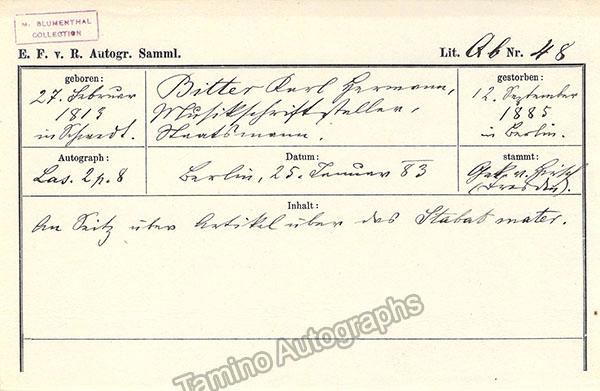 M. BLUMENTHAL
COLLECTION
E. F. v. R. Autogr. Samml.
Lit. Ab Nr. 48
geboren:
27. Februar
1813
in Schwedt.
Bitter Karl Hermann,
Musikschriftsteller,
Staatsmann.
gestorben:
12. September
1885
in Berlin.
Autograph:
Las. 2 p. 8
Datum:
Berlin, 25. Januar 83
stammt:
v. Hirsch
(Dresden).
Inhalt:
An Seitz über Artikel über das Stabat mater.
Tamino Autographs